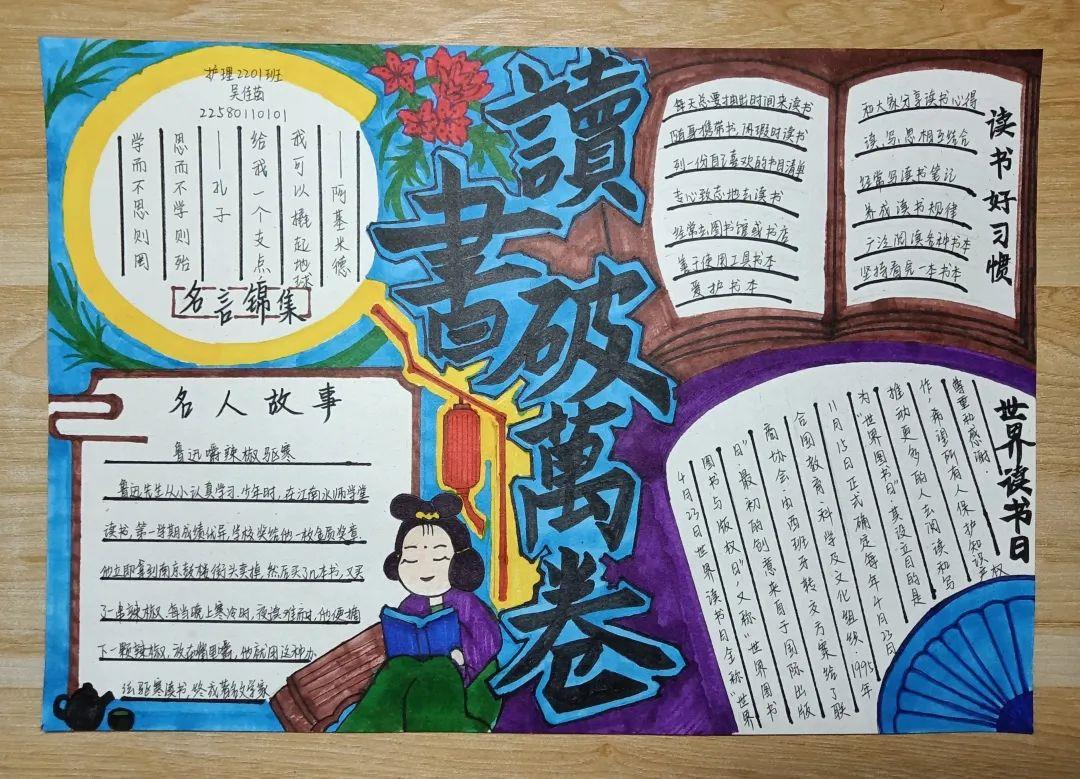 护理2201班
吴佳
22580110101
学而不思则罔
思而不学则殆
——孔子
给我一个支点
我可以撬起地球
——阿基米德
名言锦集
讀
書
破
萬
卷
读书好习惯
每天总要抽出时间来读书
随身携带书,闲暇时读书
列一份自己喜欢的书目清单
专心致志地去读书
经常去图书馆或书店
善于使用工具书本
爱护书本
和大家分享读书心得
读、写、思相互结合
经常写读书笔记
养成读书规律
广泛阅读各种书本
坚持看完一本书本
名人故事
鲁迅嚼辣椒驱寒
鲁迅先生从小认真学习.少年时,在江南水师学堂
读书,第一学期成绩优异,学校奖给他一枚金质奖章.
他立即拿到南京鼓楼街头卖掉,然后买了几本书,又买
了一串辣椒.每当晚上寒冷时,夜读难耐,他便摘
下一颗辣椒,放在嘴里嚼,他就用这种办
法驱寒读书,终成著名文学家
世界读书日
4月23日世界读书日全称"世界
图书与版权日",又称"世界图书
日".最初的创意来自于国际出版
商协会.由西班牙转交方案给了联
合国教育科学及文化组织.1995年
11月15日正式确定每年4月23日
为"世界图书日".其设立目的是
推动更多的人去阅读和写
作,希望所有人保护知识产权
尊重和感谢